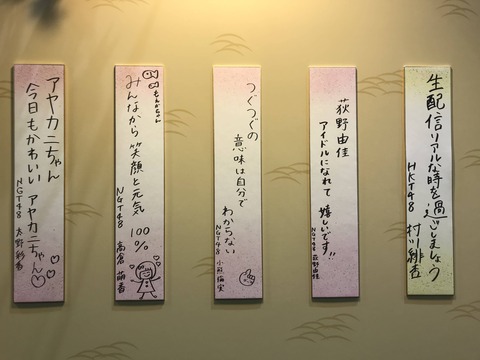 生配信リアルな時を過ごしましょう
HKT48 村川緋杏
荻野由佳
アイドルになれて
嬉しいです!!
NGT48 荻野由佳
つぐつぐの
意味は自分で
わからない
NGT48 小熊倫実
みんなから 笑顔と元気 100%
NGT48 高倉萌香
アヤカニちゃん
今日もかわいい アヤカニちゃん
NGT48 太野彩香